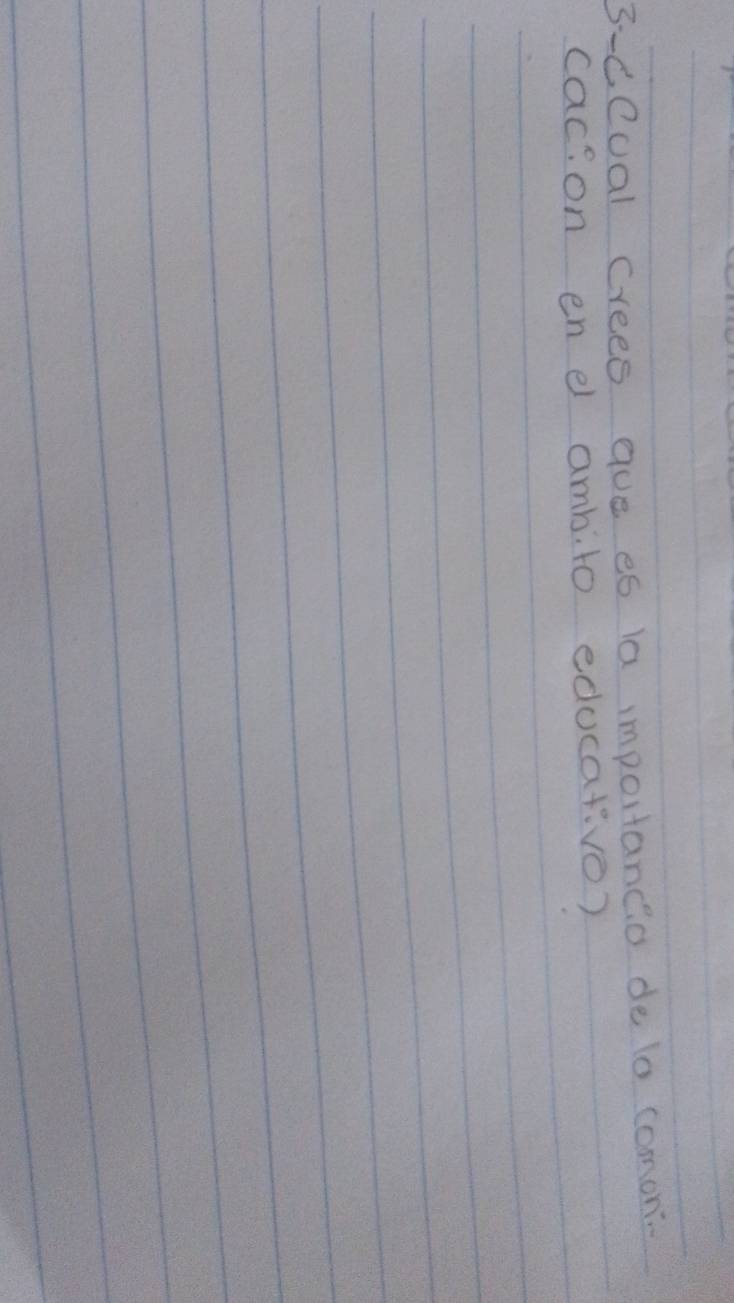 3.-¿Cual crees que es la importancia de la comoni-
cacion en el ambito educativo?